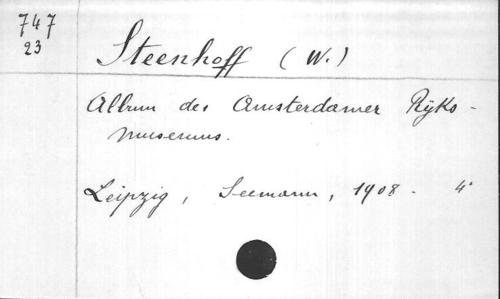 747
23
Steenhoff (W.)
Album des Amsterdamer Rijks-
museums.
Leipzig, Seemann, 1908. 4°